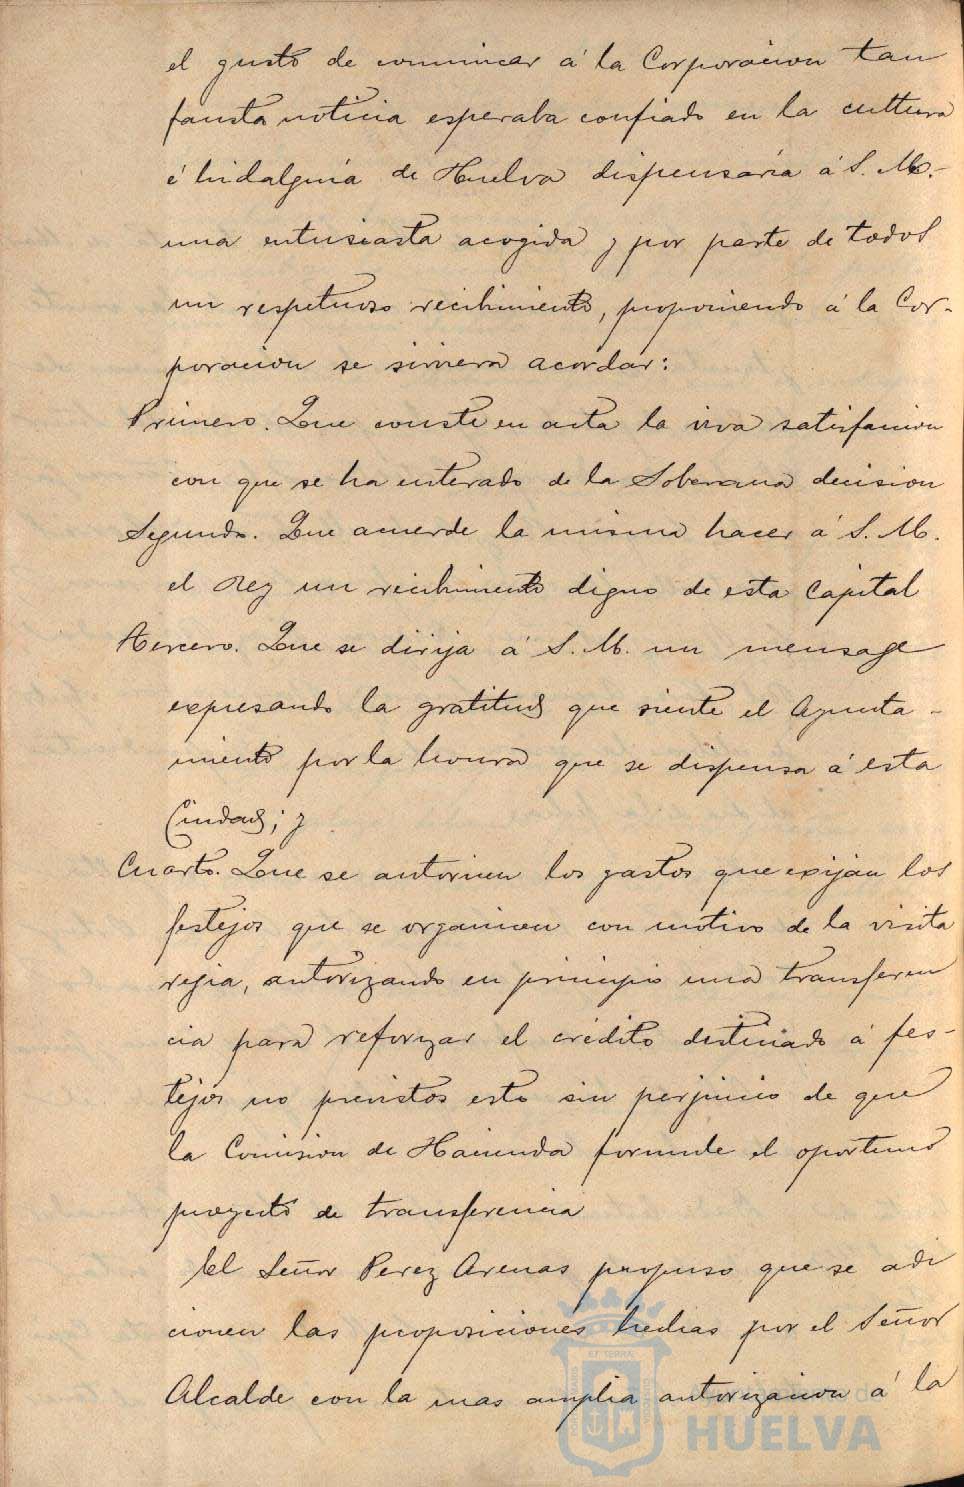 el gusto de comunicar á la Corporacion tan
fausta noticia esperaba confiado en la cultura
é hidalguía de Huelva dispensaría á S. M.
una entusiasta acogida y por parte de todos
un respetuoso recibimiento, proponiendo á la Cor-
poracion se sirviera acordar:
Primero. Que conste en acta la viva satisfaccion
con que se ha enterado de la Soberana decision
Segundo. Que acuerde la misma hacer á S. M.
el Rey un recibimiento digno de esta Capital
Tercero. Que se dirija á S. M. un mensage
expresando la gratitud que siente el Ayunta-
miento por la honra que se dispensa á esta
Ciudad; y
Cuarto. Que se autoricen los gastos que exijan los
festejos que se organicen con motivo de la visita
regia, autorizando en principio una transferen
cia para reforzar el crédito destinado á fes-
tejos no previstos esto sin perjuicio de que
la Comision de Hacienda formule el oportuno
proyecto de transferencia
El Señor Perez Arenas propuso que se adi
cionen las proposiciones hechas por el Señor
Alcalde con la mas amplia autorizacion á la
HUELVA